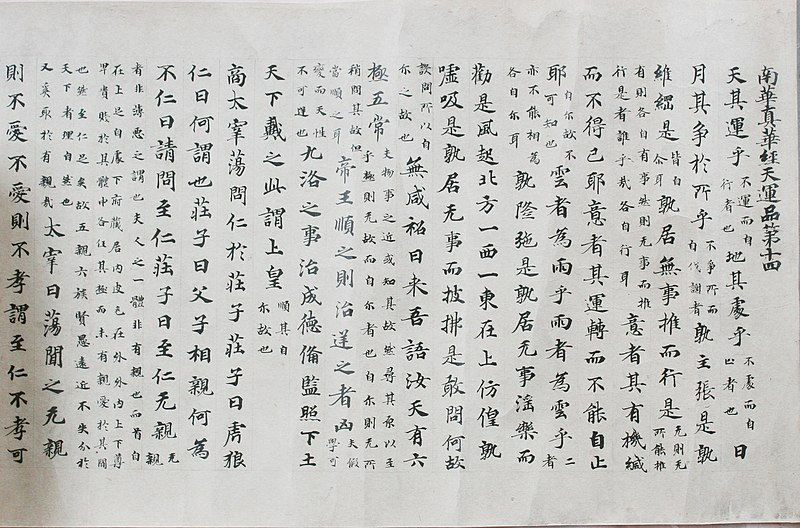 南華真華經天運品第十四
天其運乎不運而自行者也地其處乎不處而自止者也日
月其争於所乎不争所而自代謝者孰主張是孰
維綱是皆自尒耳孰居無事推而行是无則无所能推
有則各自有事然則无事而推行是者誰乎哉各自行耳意者其有機緘
而不得已耶意者其運轉而不能自止
耶自尒故不可知也雲者為雨乎雨者為雲乎二者
亦不能相為各自尒耳孰隆弛是孰居无事滛樂而
勸是風起北方一西一東在上仿偟孰
嘘吸是孰居无事而披拂是敢問何故
設問所以自尒之故也無咸袑曰来吾語汝天有六
極五常夫物事之近或知其故然尋其原以至乎極則无故而自尒者也自尒則无所
稍問其故但當順之耳帝王順之則治逆之者凶夫假學可
變而天性不可逆也九洛之事治成徳俻監照下土
天下戴之此謂上皇順其自尒故也
商太宰蕩問仁於莊子莊子曰虎狼
仁曰何謂也莊子曰父子相親何為
不仁曰請問至仁莊子曰至仁无親无親
者非薄悪之謂也夫人之一體非有親也而首自在上足自處下府蔵居内皮毛在外外内上下尊
卑貴賤於其體中各任其極而未有親愛於其間也然至仁足矣故五親六族賢愚遠近不失分於
天下者理自然也又奚取於有親哉太宰曰蕩聞之无親
則不愛不愛則不孝謂至仁不孝可